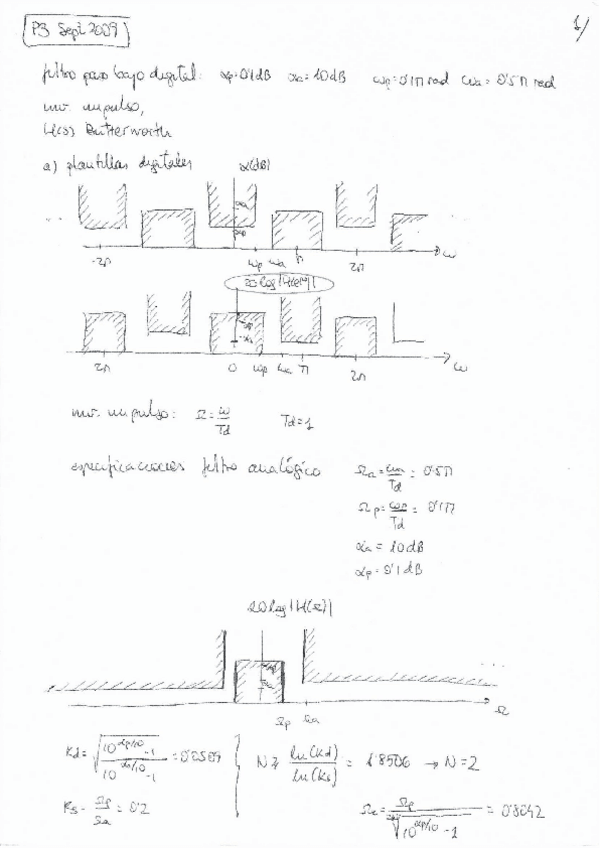 P3 Sept 2009
1/
filtro paso bajo digital: αp=0'1dB αa=10dB ωp=0'1π rad ωa=0'5π rad
inv. impulso,
H(s) Butterworth
a) plantillas digitales α(dB)
... αa ...
αp
-2π ωp ωa π 2π ω
20 log|H(e^jω)|
-αp
-αa
2π 0 ωp ωa π 2π ω
inv. impulso: Ω = ω/Td Td=1
especificaciones filtro analógico Ωa = ωa/Td = 0'5π
Ωp = ωp/Td = 0'1π
αa = 10dB
αp = 0'1dB
20 log|H(Ω)|
...
Ωp Ωa Ω
Kd = √((10^(αp/10) -1)/(10^(αa/10) -1)) = 0'0509 N ≥ ln(Kd)/ln(Ks) = 1'8506 → N=2
Ks = Ωp/Ωa = 0'2 Ωc = Ωp/ ²ᴺ√(10^(αp/10) -1) = 0'8042